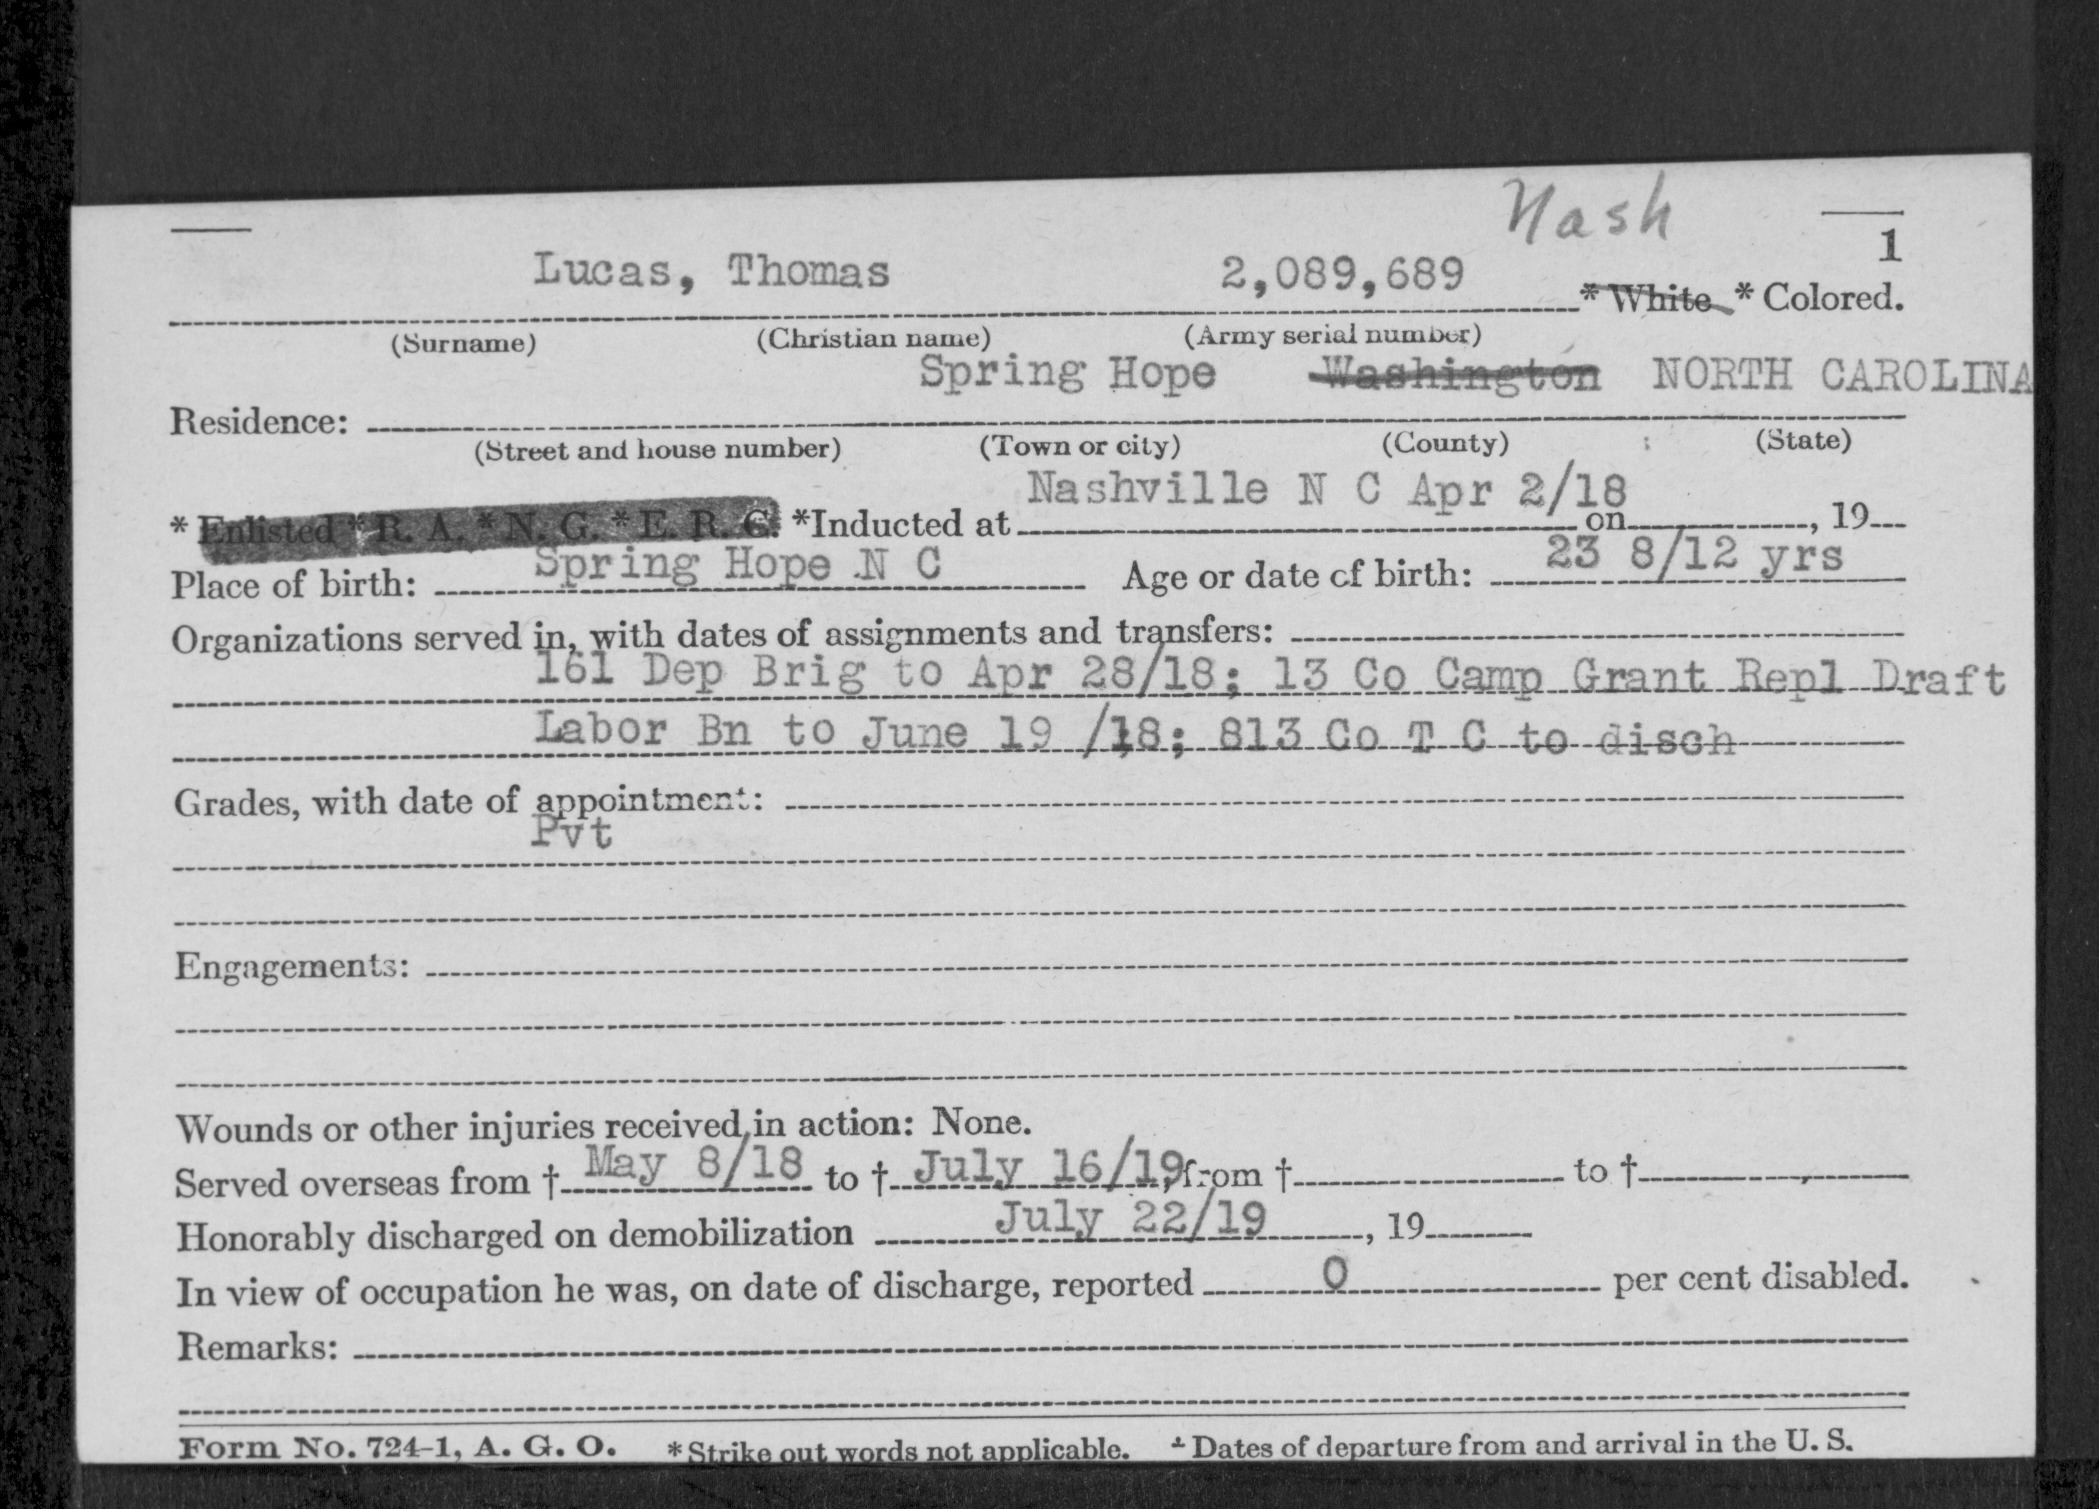 Nash
1
Lucas, Thomas 2,089,689 * White * Colored.
(Surname) (Christian name) (Army serial number)
Spring Hope Washington NORTH CAROLINA
Residence:
(Street and house number) (Town or city) (County) (State)
Nashville N C Apr 2/18
* Enlisted * R. A. * N. G. * E. R. C. *Inducted at on , 19
Spring Hope N C 23 8/12 yrs
Place of birth: Age or date of birth:
Organizations served in, with dates of assignments and transfers:
161 Dep Brig to Apr 28/18; 13 Co Camp Grant Repl Draft
Labor Bn to June 19 /18; 813 Co T C to disch
Grades, with date of appointment:
Pvt
Engagements:
Wounds or other injuries received in action: None.
Served overseas from † May 8/18 to † July 16/19, from † to †
Honorably discharged on demobilization July 22/19 , 19
In view of occupation he was, on date of discharge, reported 0 per cent disabled.
Remarks:
Form No. 724-1, A. G. O. * Strike out words not applicable. † Dates of departure from and arrival in the U. S.